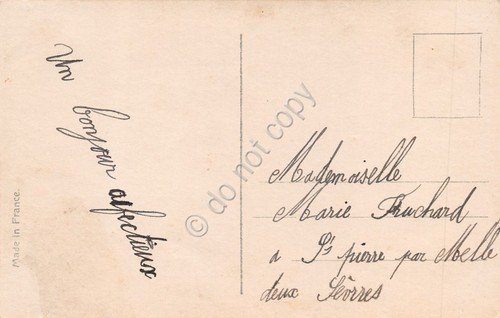 Un bonjour affectieux
Made in France.
© do not copy
Mademoiselle
Marie Fruchard
a St pierre par Melle
deux Sèvres